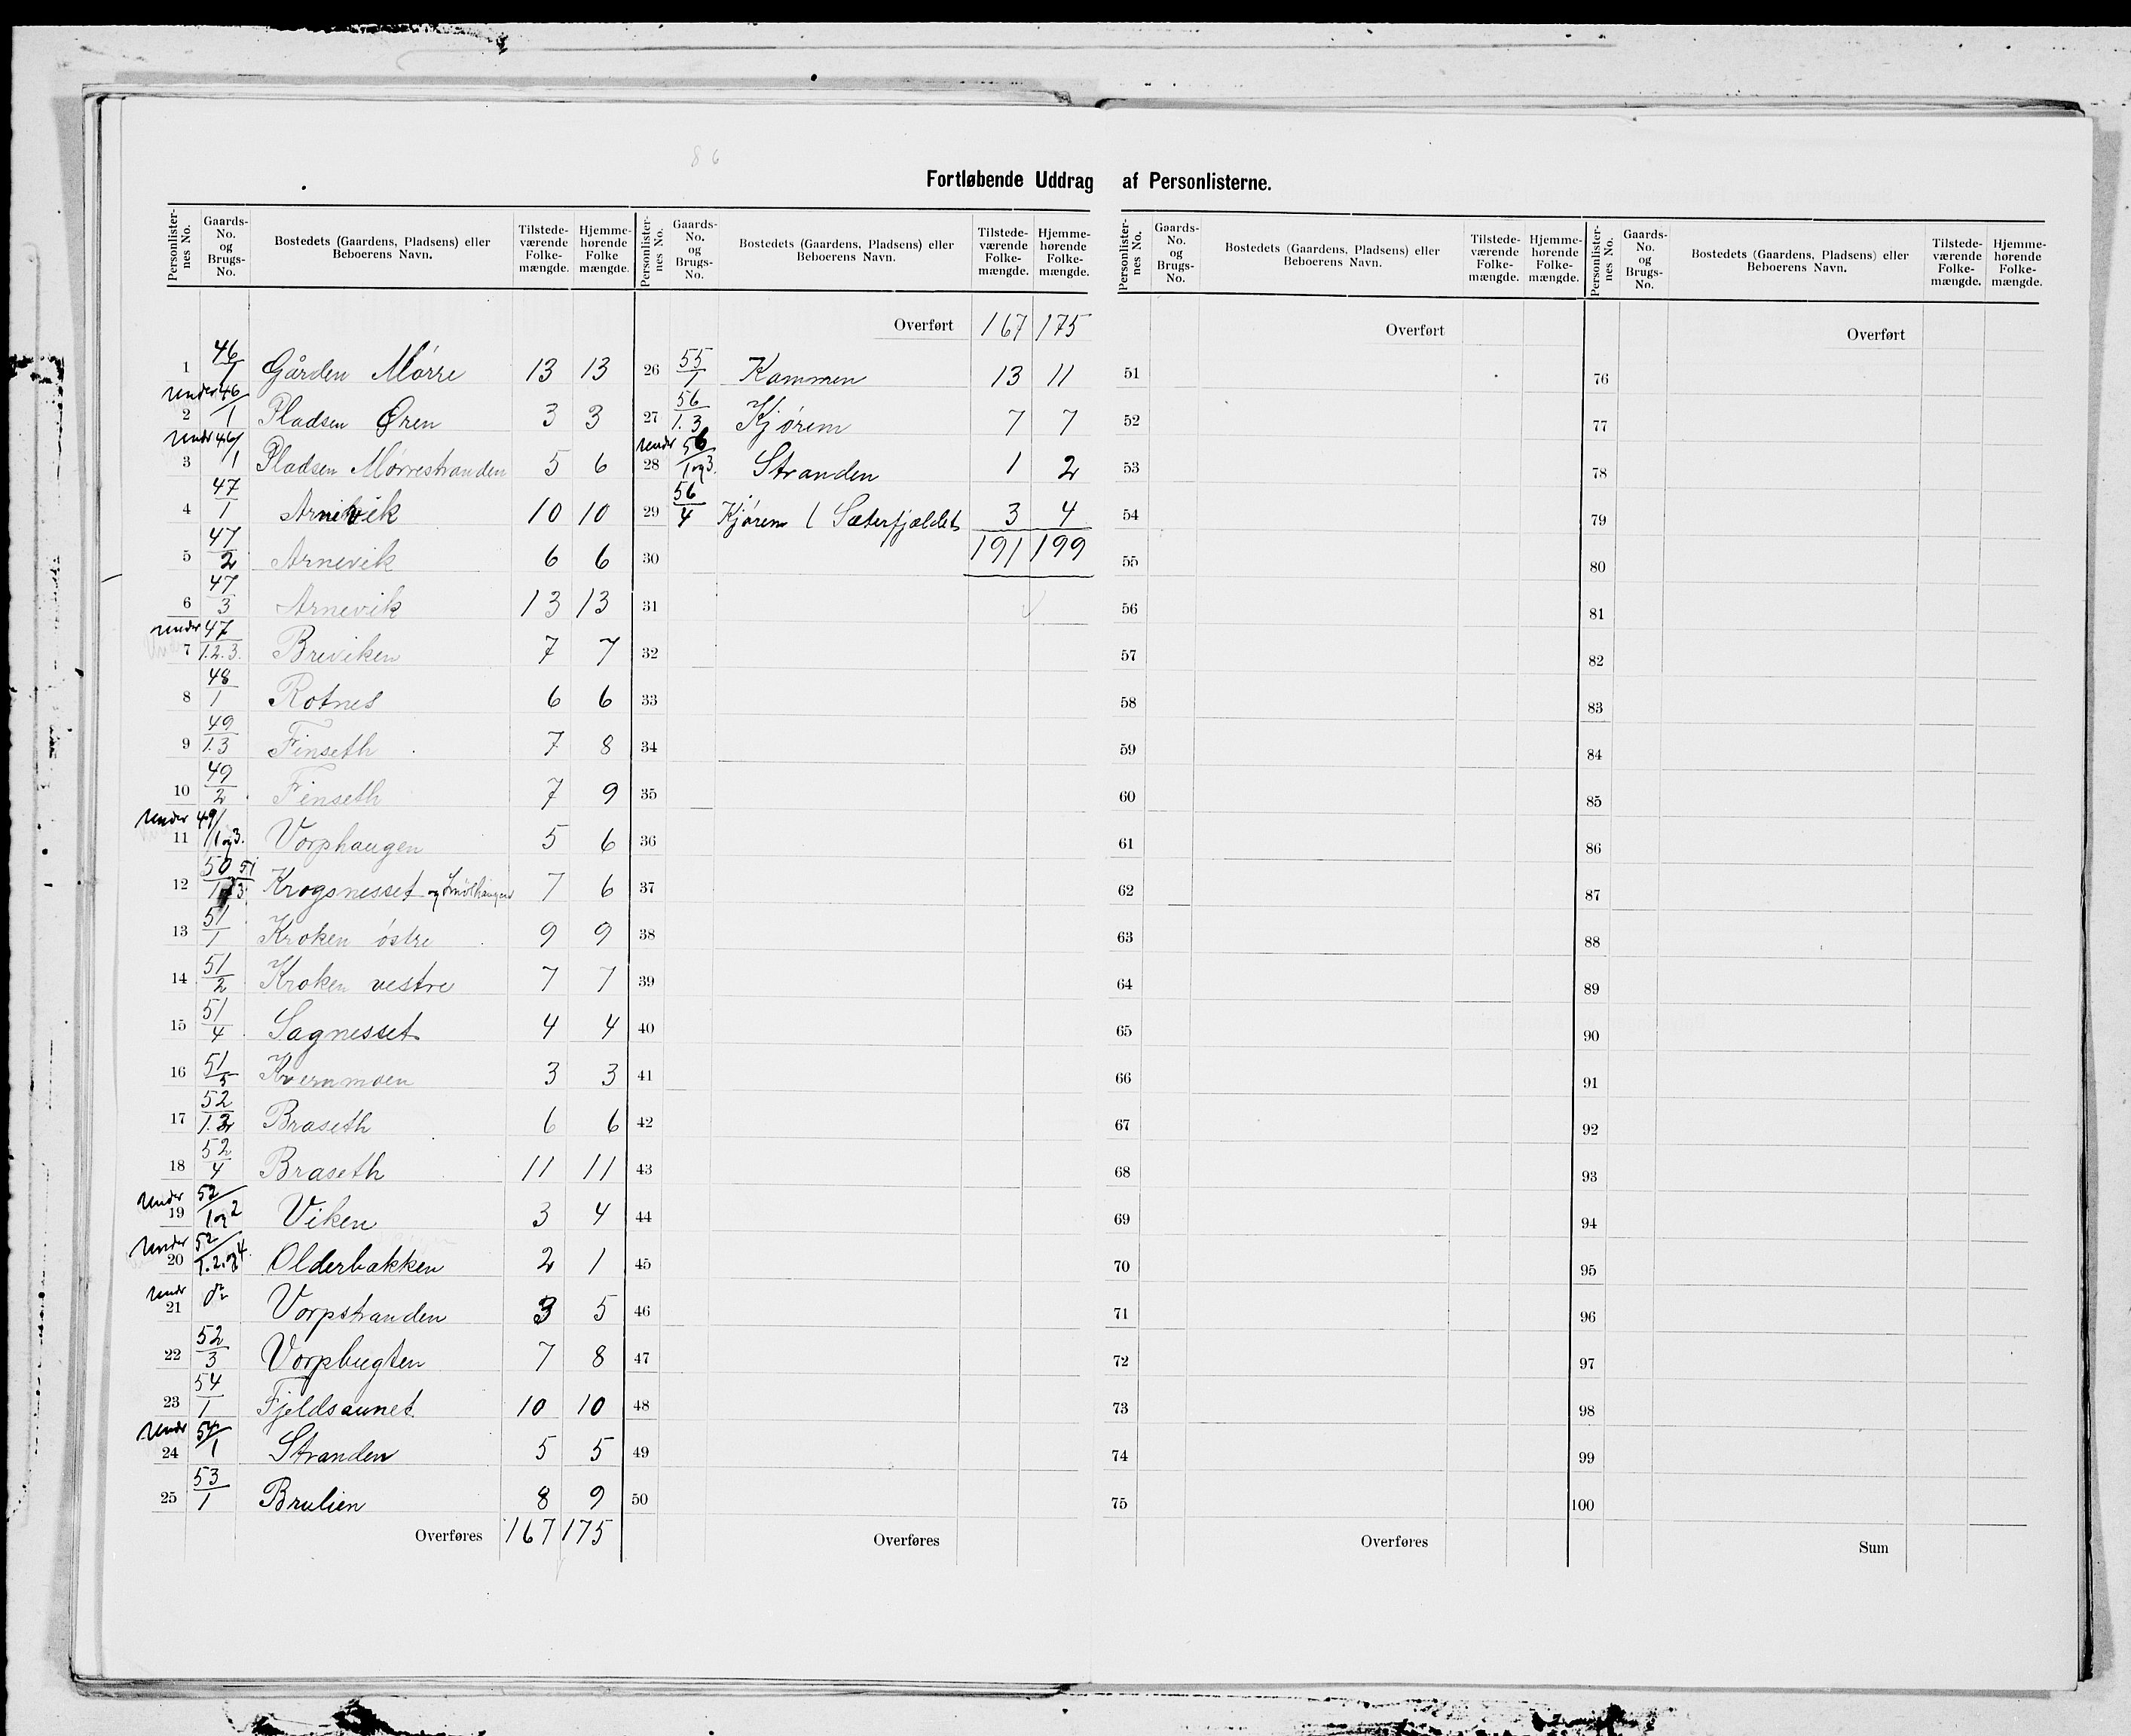 86
Fortløbende Uddrag af Personlisterne.
Personlisternes No. Gaards-No. og Brugs-No. Bostedets (Gaardens, Pladsens) eller Beboerens Navn. Tilstedeværende Folkemængde. Hjemmehørende Folkemængde.
Personlisternes No. Gaards-No. og Brugs-No. Bostedets (Gaardens, Pladsens) eller Beboerens Navn. Tilstedeværende Folkemængde. Hjemmehørende Folkemængde.
Personlisternes No. Gaards-No. og Brugs-No. Bostedets (Gaardens, Pladsens) eller Beboerens Navn. Tilstedeværende Folkemængde. Hjemmehørende Folkemængde.
Personlisternes No. Gaards-No. og Brugs-No. Bostedets (Gaardens, Pladsens) eller Beboerens Navn. Tilstedeværende Folkemængde. Hjemmehørende Folkemængde.
1 46/1 Gården Mørre 13 13
2 under 46/1 Pladsen Øren 3 3
3 under 46/1 Pladsen Mørrestranden 5 6
4 47/1 Arnevik 10 10
5 47/2 Arnevik 6 6
6 47/3 Arnevik 13 13
7 under 47/1.2.3. Breviken 7 7
8 48/1 Rotnes 6 6
9 49/1.3 Finseth 7 8
10 49/2 Finseth 7 9
11 under 49/1og3. Vorphaugen 5 6
12 50/1 51/3 Krogsnesset og 7 6
13 51/1 Kroken østre 9 9
14 51/2 Kroken vestre 7 7
15 51/4 Sagnesset 4 4
16 51/5 Kvernmoen 3 3
17 52/1.2 Braseth 6 6
18 52/4 Braseth 11 11
19 under 52/1og2 Viken 3 4
20 under 52/1.2.og4. Olderbakken 2 1
21 under do Vorpstranden 3 5
22 52/3 Vorpbugten 7 8
23 54/1 Fjeldsaunet 10 10
24 under 54/1 Stranden 5 5
25 53/1 Brulien 8 9
Overføres 167 175
Overført 167 175
26 55/1 Kammen 13 11
27 56/1.3 Kjørem 7 7
28 under 56/1og3. Stranden 1 2
29 56/4 Kjørem ( Sæterfjældet 3 4
30 191 199
31
32
33
34
35
36
37
38
39
40
41
42
43
44
45
46
47
48
49
50
Overføres
Overført
51
52
53
54
55
56
57
58
59
60
61
62
63
64
65
66
67
68
69
70
71
72
73
74
75
Overføres
Overført
76
77
78
79
80
81
82
83
84
85
86
87
88
89
90
91
92
93
94
95
96
97
98
99
100
Sum